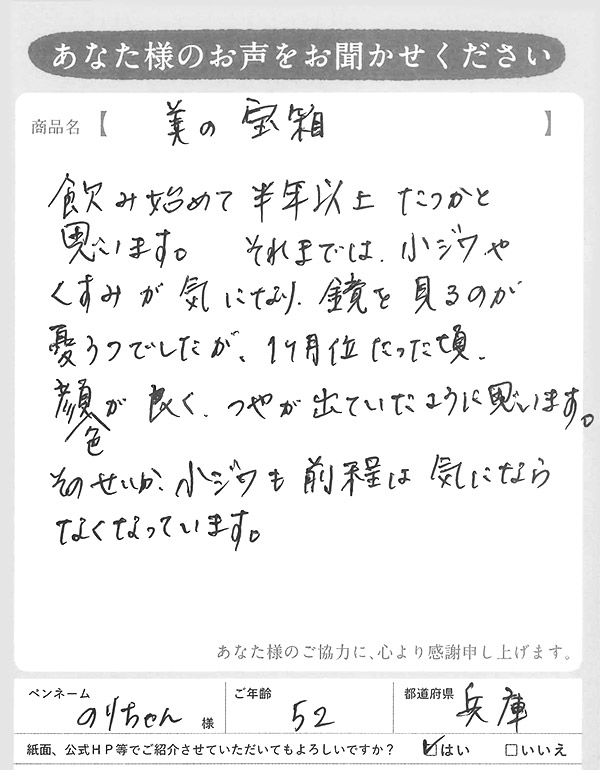 あなた様のお声をお聞かせください
商品名【 美の宝箱 】
飲み始めて半年以上たつかと
思います。 それまでは、小ジワや
くすみが気になり、鏡を見るのが
憂うつでしたが、1ケ月位たった頃、
顔色が良く、つやが出ていたように思います。
そのせいか、小ジワも前程は気になら
なくなっています。
あなた様のご協力に、心より感謝申し上げます。
ペンネーム のりちゃん 様 ご年齢 52 都道府県 兵庫
紙面、公式HP等でご紹介させていただいてもよろしいですか? ☑はい □いいえ